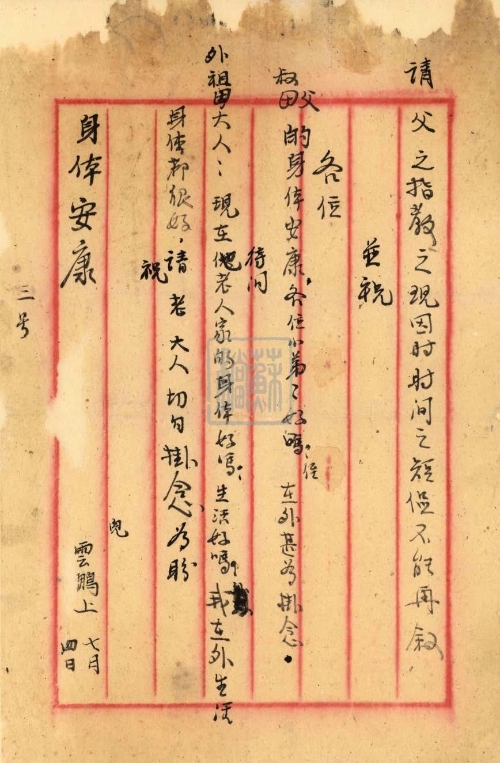 請父之指教之現因时时间之短促不能再敘
並祝
各位
叔父母的身体安康，各位小弟々好嗎；侄在外甚為掛念。
待问
外祖母大人：現在他老人家的身体好嗎；生活好嗎，我在外生活
身体都很好，請老大人切勿掛念為盼
祝
身体安康
兒
雲鵬上
七月四日
三号